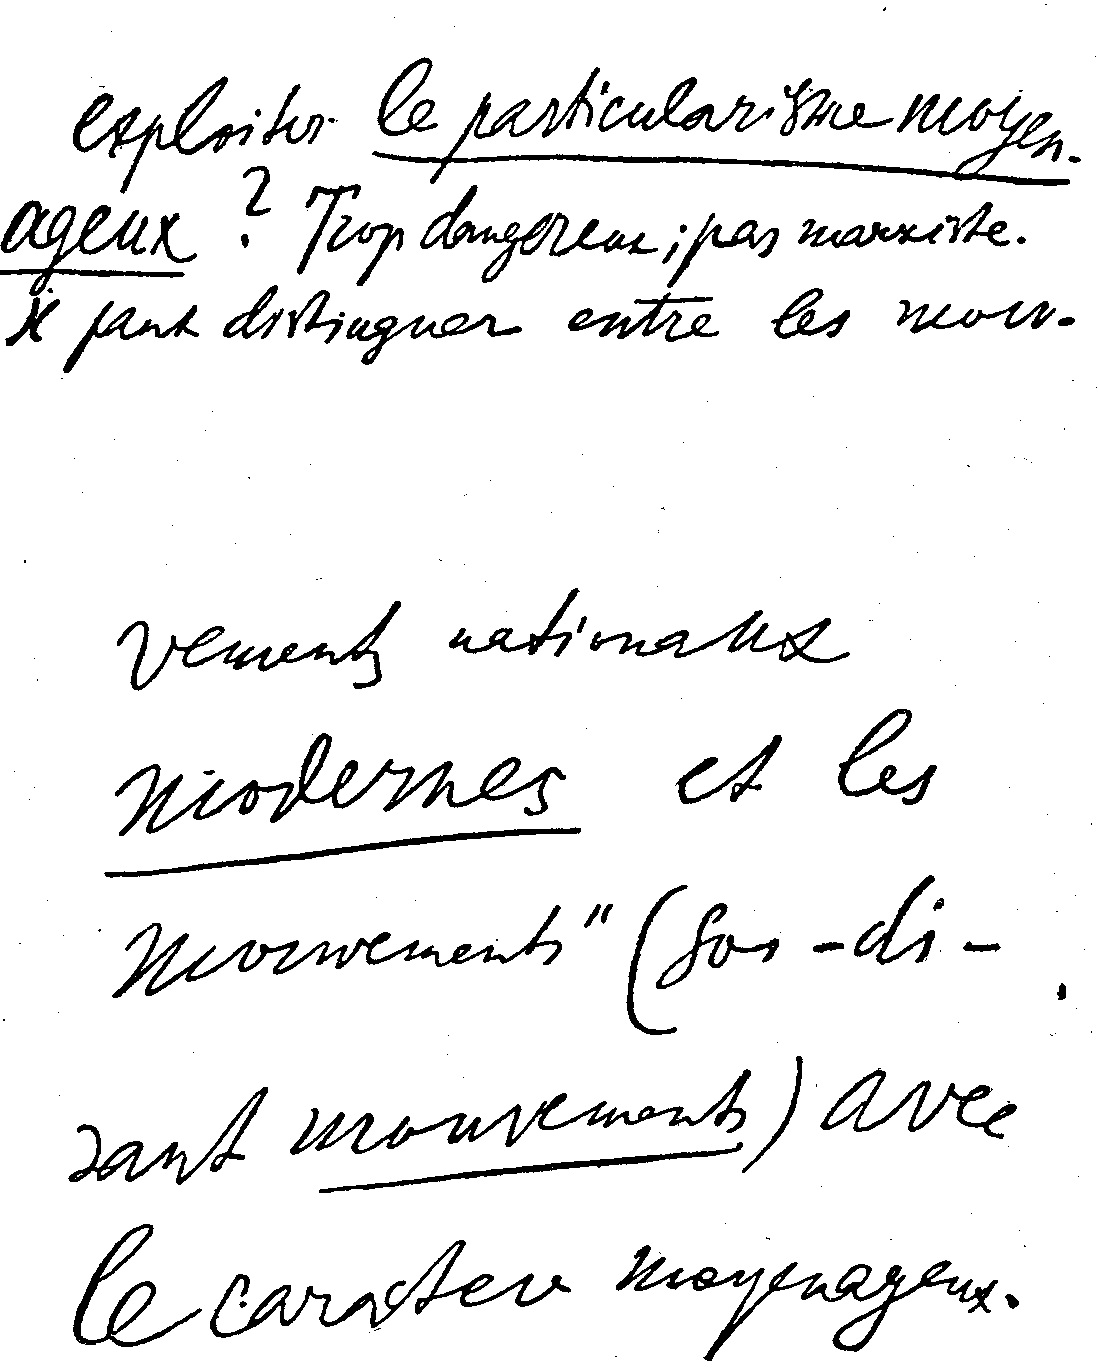 exploiter le particularisme moyen-
ageux ? Trop dangereux ; pas marxiste.
Il faut distinguer entre les mou-
vements nationaux
modernes et les
mouvements" (soi-di-
sant mouvements) avec
le caractere moyenageux.